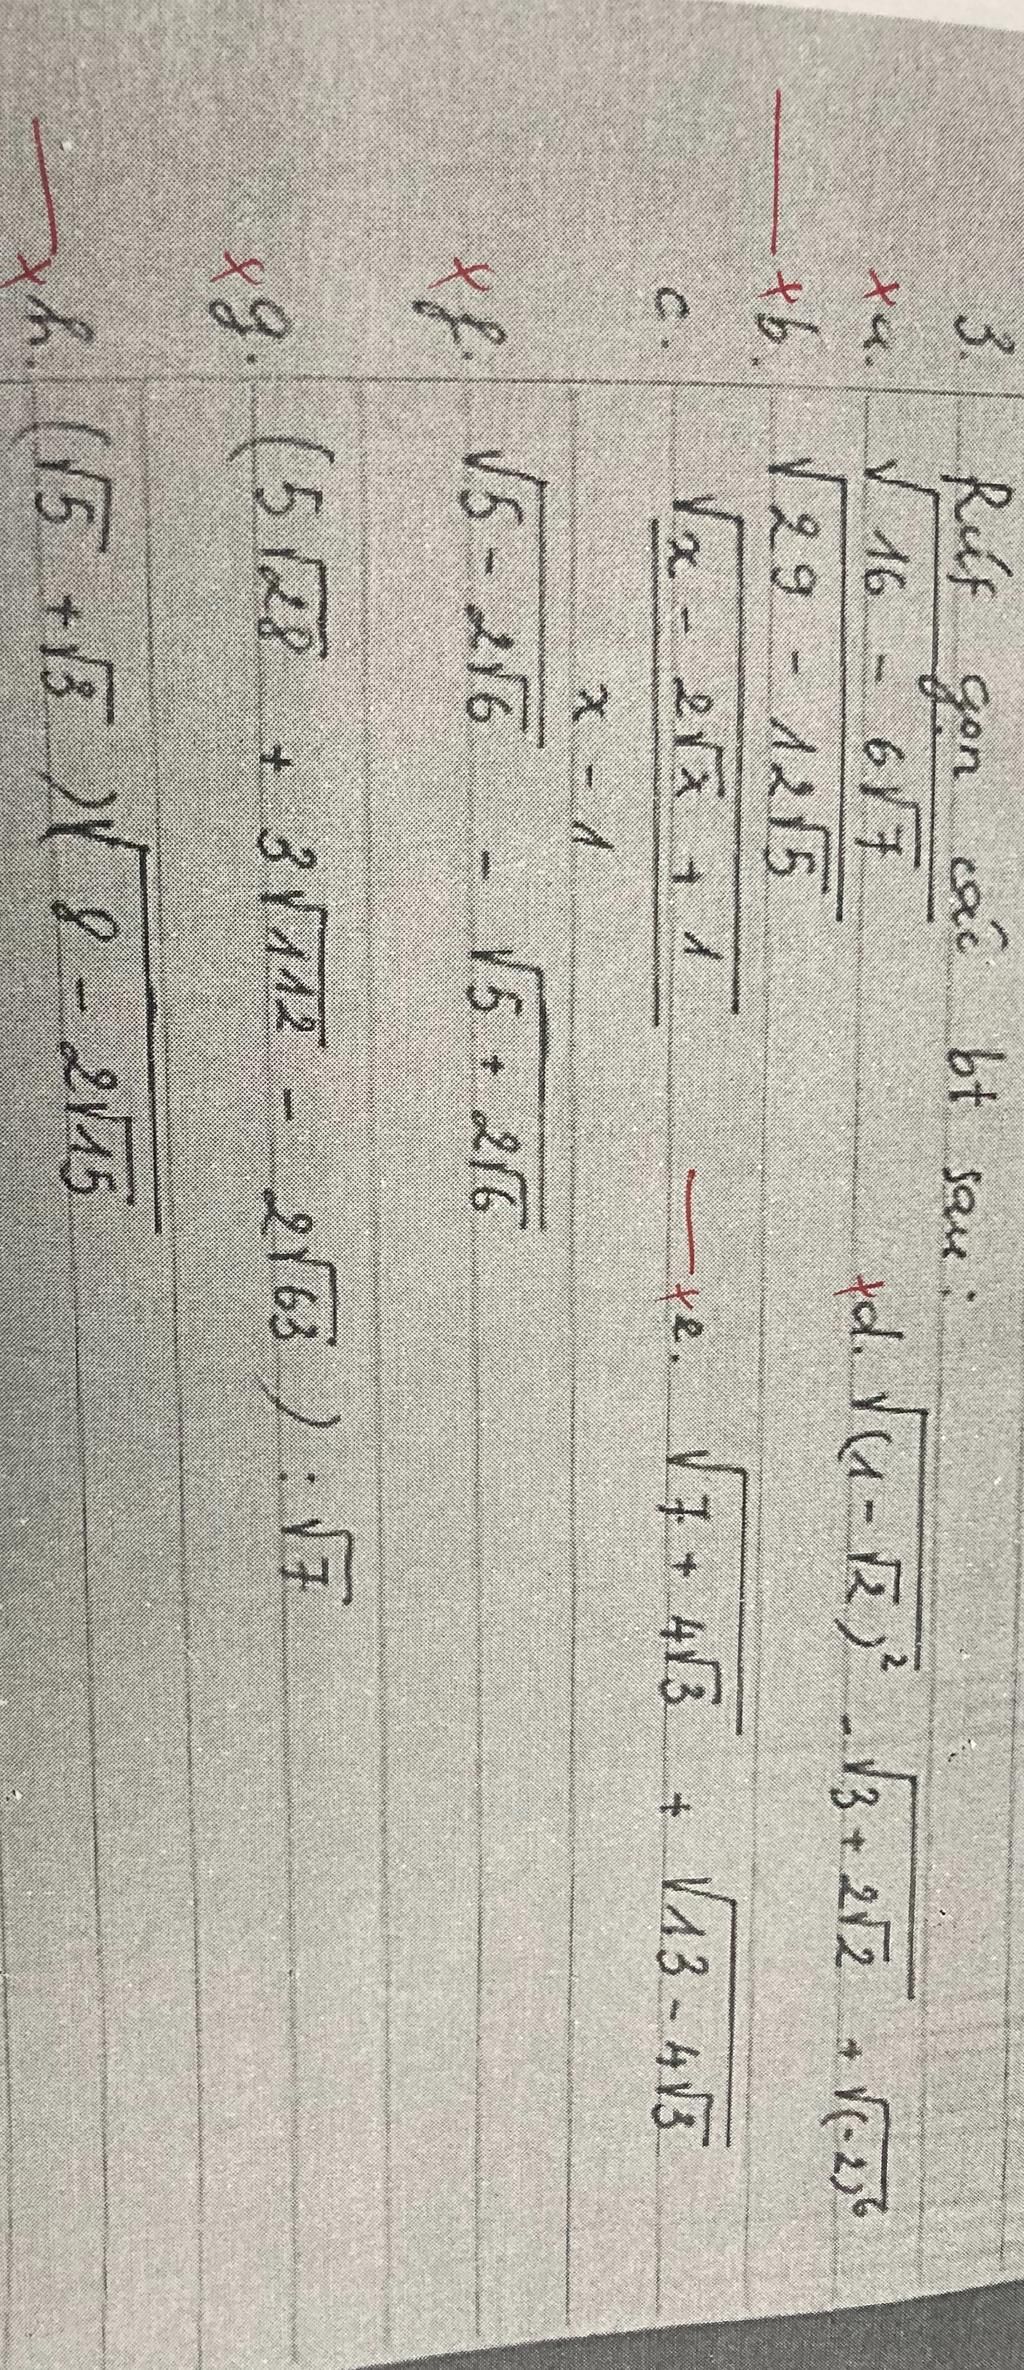 3. Rút gọn các bt sau:
x a. √(16 - 6√7) x d. √((1-√2)²) - √(3+2√2) + √((-2)⁶)
— x b. √(29 - 12√5)
c. √(x - 2√x + 1) / (x - 1) — x e. √(7 + 4√3) + √(13 - 4√3)
x f. √(5 - 2√6) - √(5 + 2√6)
x g. (5√28 + 3√112 - 2√63) : √7
— x h. (√5 + √3)√(8 - 2√15)